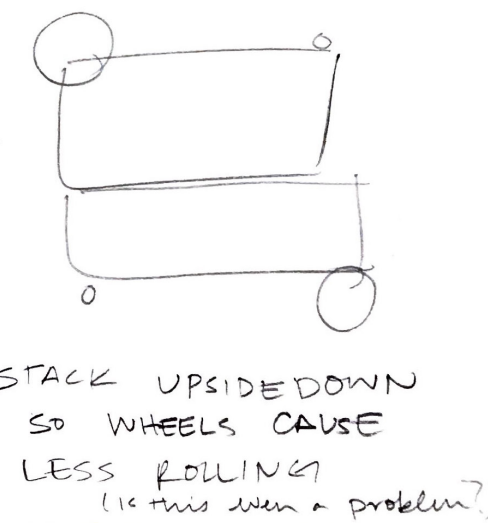 STACK UPSIDEDOWN
SO WHEELS CAUSE
LESS ROLLING
(is this even a problem?